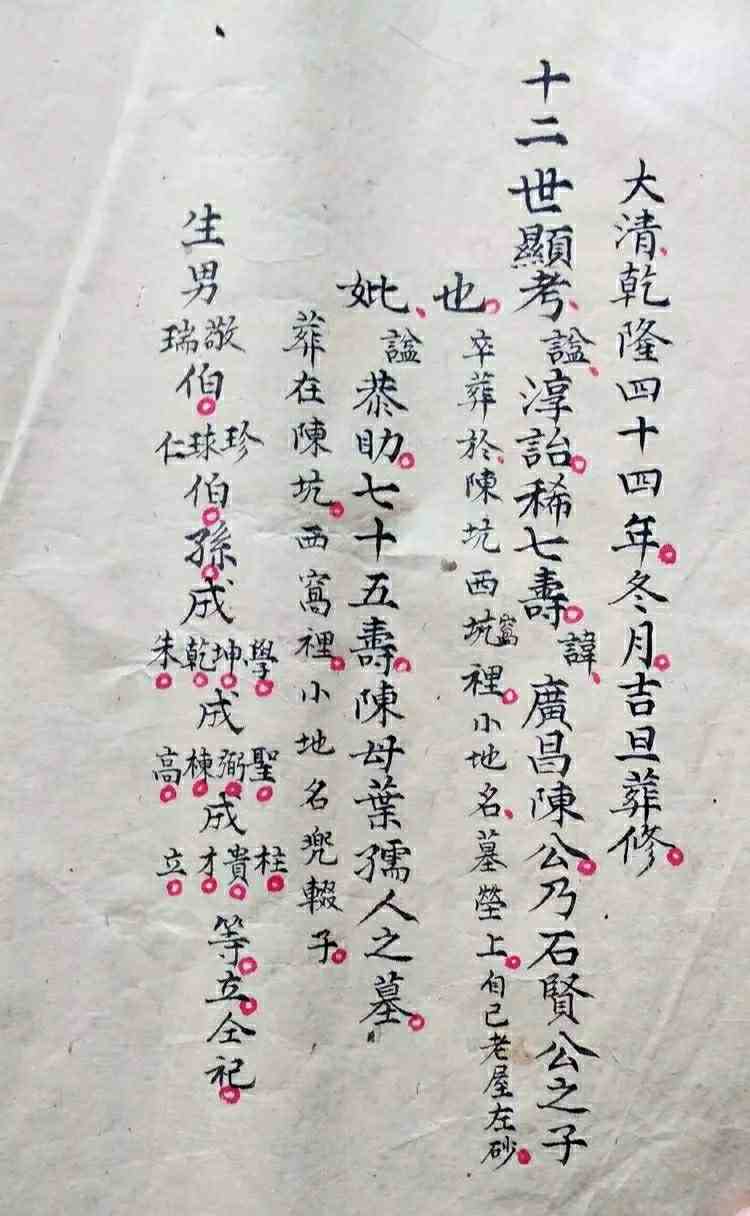 大清乾隆四十四年冬月吉旦葬修
十二世顯考諡淳詒稀七壽諱廣昌陳公乃石賢公之子
也卒葬於陳坑西坑窩裡小地名墓塋上自己老屋左砂
妣諡恭助七十五壽陳母葉孺人之墓
葬在陳坑西窩裡小地名兜輟子
生男敬瑞伯珍球仁伯孫成學坤乾朱成聖弼棟高成柱貴才立等立仝祀